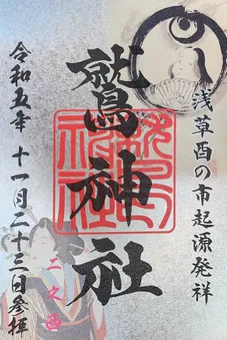 浅草酉の市起源発祥
鷲神社
鷲神社
二之酉
令和五年 十一月二十三日参拝